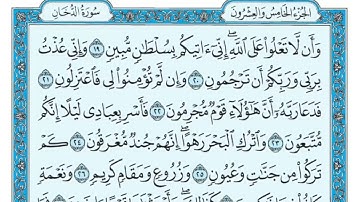 الجزء الخامس والعشرون سورة الدخان
وَأَن لَّا تَعْلُوا عَلَى اللَّهِ إِنِّي ءَاتِيكُم بِسُلْطَانٍ مُّبِينٍ ١٩ وَإِنِّي عُذْتُ
بِرَبِّي وَرَبِّكُمْ أَن تَرْجُمُونِ ٢٠ وَإِن لَّمْ تُؤْمِنُوا لِي فَاعْتَزِلُونِ ٢١
فَدَعَا رَبَّهُ أَنَّ هَٰؤُلَاءِ قَوْمٌ مُّجْرِمُونَ ٢٢ فَأَسْرِ بِعِبَادِي لَيْلًا إِنَّكُم
مُّتَّبَعُونَ ٢٣ وَاتْرُكِ الْبَحْرَ رَهْوًا إِنَّهُمْ جُندٌ مُّغْرَقُونَ ٢٤ كَمْ
تَرَكُوا مِن جَنَّاتٍ وَعُيُونٍ ٢٥ وَزُرُوعٍ وَمَقَامٍ كَرِيمٍ ٢٦ وَنَعْمَةٍ